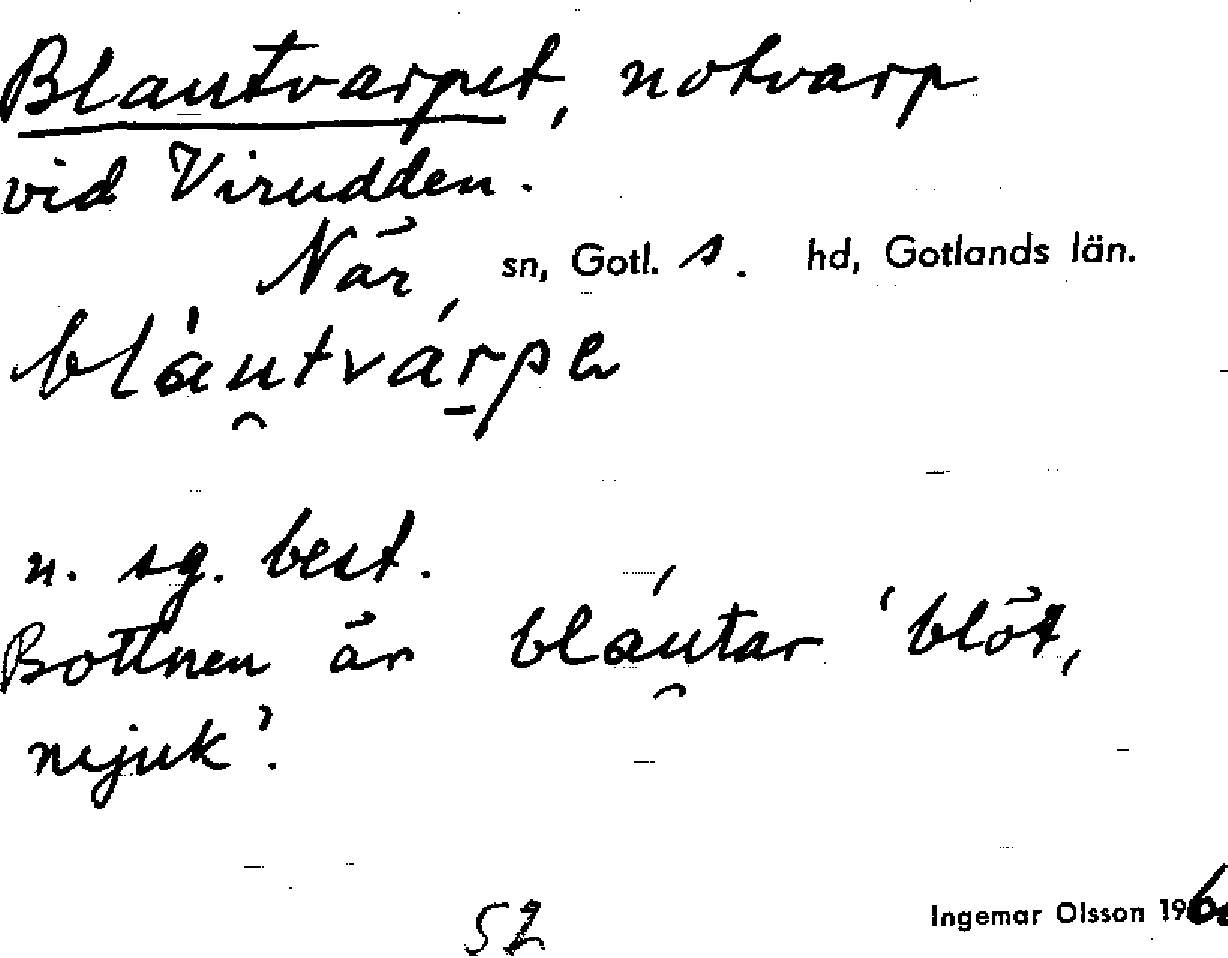 Blautvarpet, notvarp
vid Virudden.
När sn, Gotl. s. hd, Gotlands län.
blàu̯tvár̠pə
n. sg. best.
Bottnen är bláu̯tar 'blöt,
mjuk'.
52
Ingemar Olsson 196